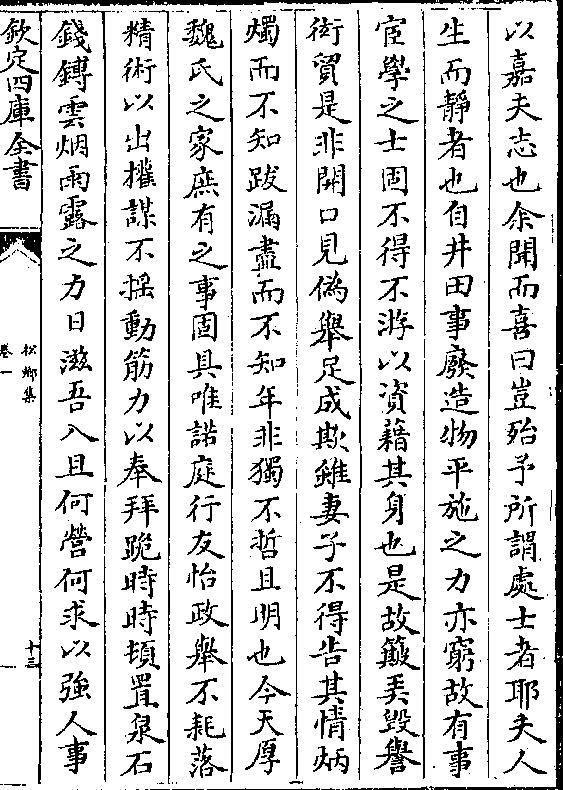 以嘉夫志也余聞而喜曰豈殆予所謂處士者耶夫人
生而靜者也自井田事廢造物平施之力亦窮故有事
宦學之士固不得不游以資藉其身也是故簸弄毀譽
衒貿是非開口見偽舉足成欺雖妻子不得告其情炳
燭而不知跋漏盡而不知年非獨不哲且明也今天厚
魏氏之家庶有之事固具唯諾庭行友怡政舉不耗落
精術以出㩁謀不揺動筋力以奉拜跪時時頓置泉石
錢鎛雲烟雨露之力日滋吾入且何營何求以強人事
欽定四庫全書
松鄉集
卷一
十三